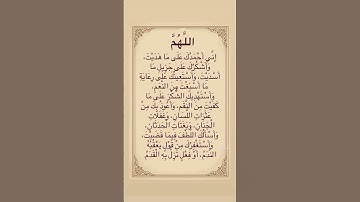 اللَّهُمَّ
إِنِّي أَحْمَدُكَ عَلَى مَا هَدَيْتَ،
وَأَشْكُرُكَ عَلَى جَزِيلِ مَا
أَسْدَيْتَ، وَأَسْتَعِينُكَ عَلَى رِعَايَةِ
مَا أَسْبَغْتَ مِنَ النِّعَمِ،
وَأَسْتَهْدِيكَ الشُّكْرَ عَلَى مَا
كَفَيْتَ مِنَ النِّقَمِ، وَأَعُوذُ بِكَ مِنْ
عَثَرَاتِ اللِّسَانِ، وَغَفَلَاتِ
الْجَنَانِ، وَبَغَتَاتِ الْحَدَثَانِ،
وَأَسْأَلُكَ اللُّطْفَ فِيمَا قَضَيْتَ،
وَأَسْتَغْفِرُكَ مِنْ قَوْلٍ يَعْقُبُهُ
النَّدَمُ، أَوْ فِعْلٍ تَزِلُّ بِهِ الْقَدَمُ